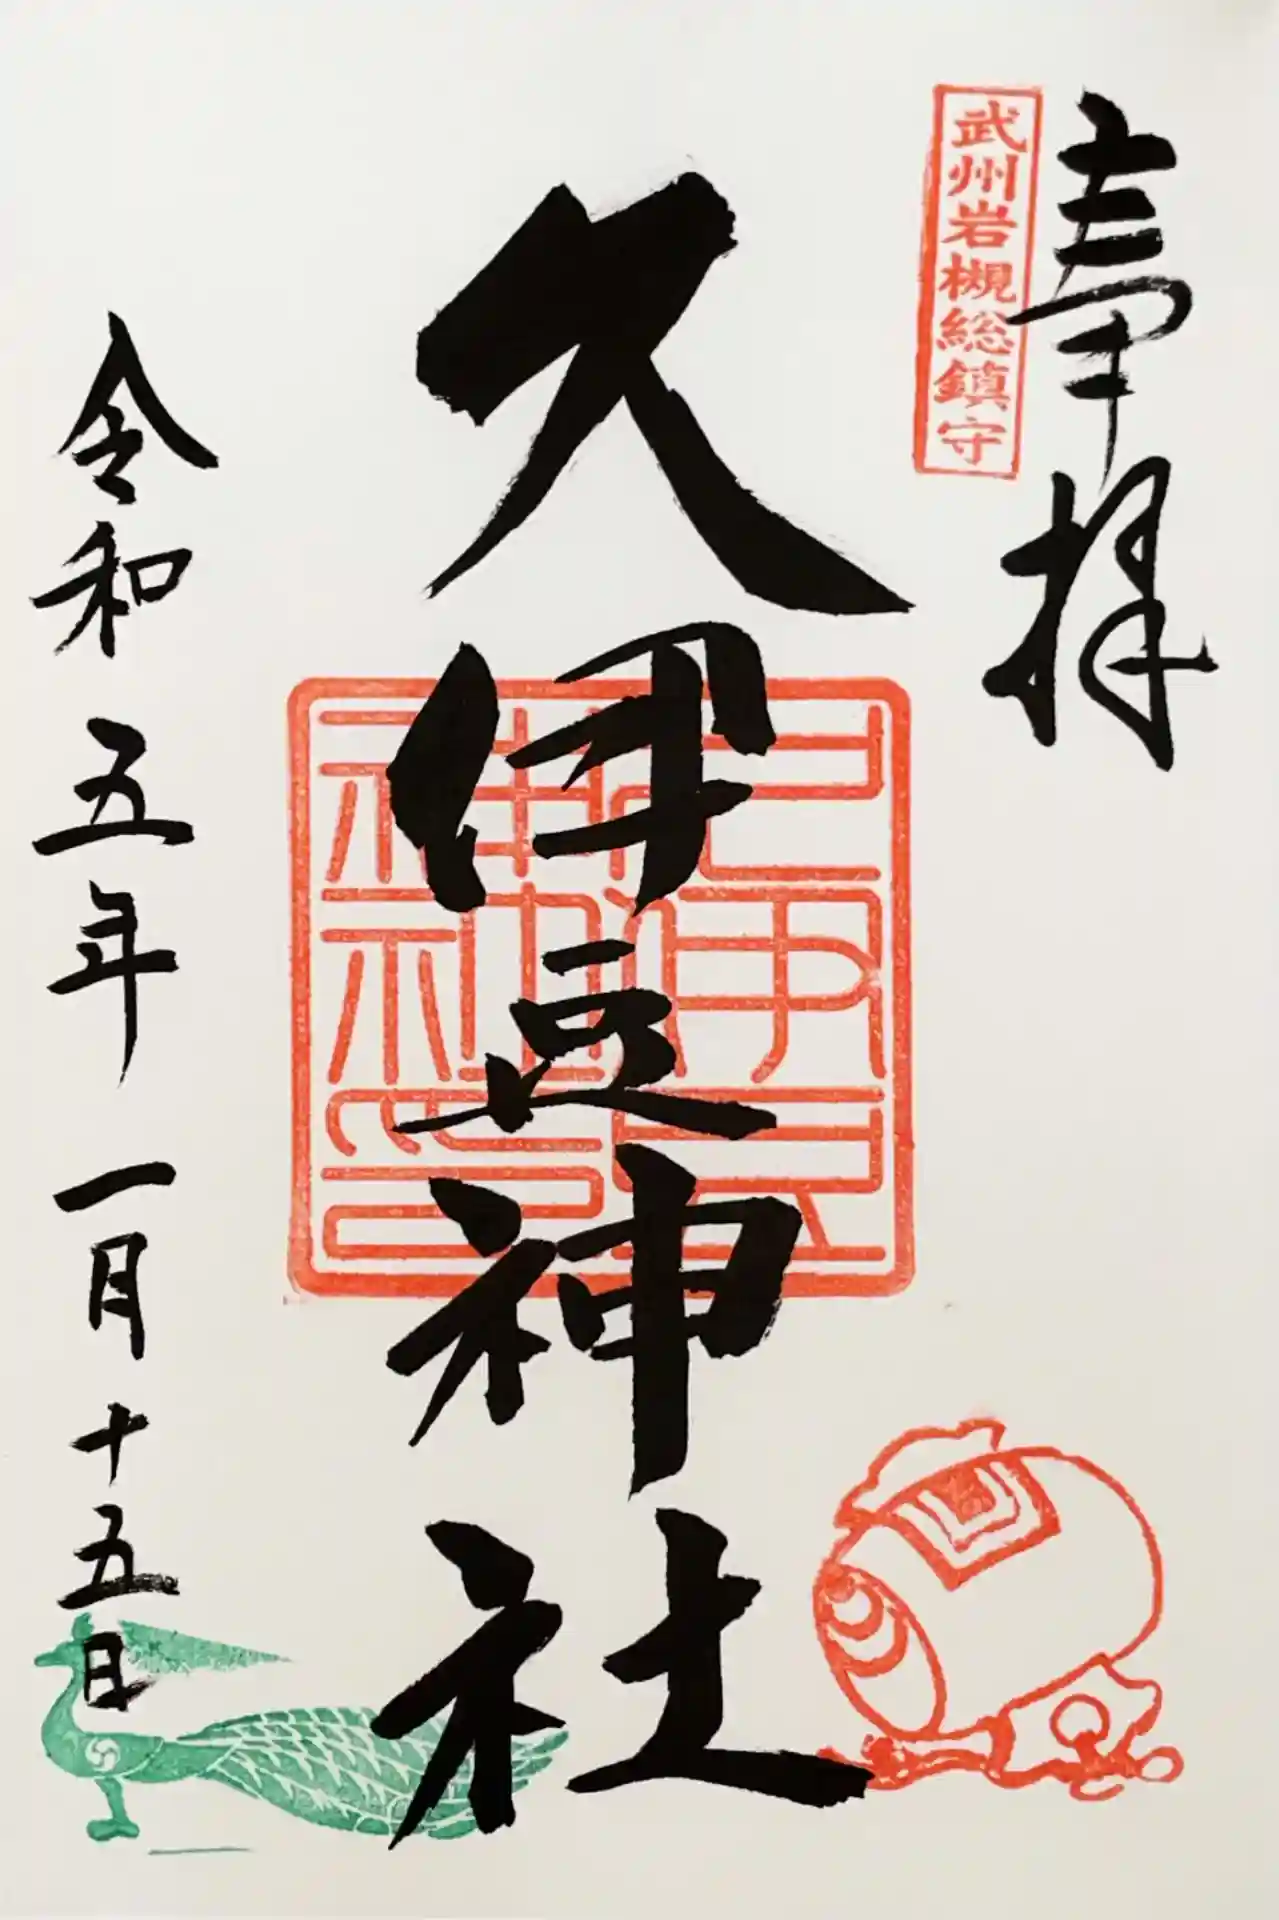 奉拝
武州岩槻総鎮守
久伊豆神社
久伊豆神社印
令和五年一月十五日